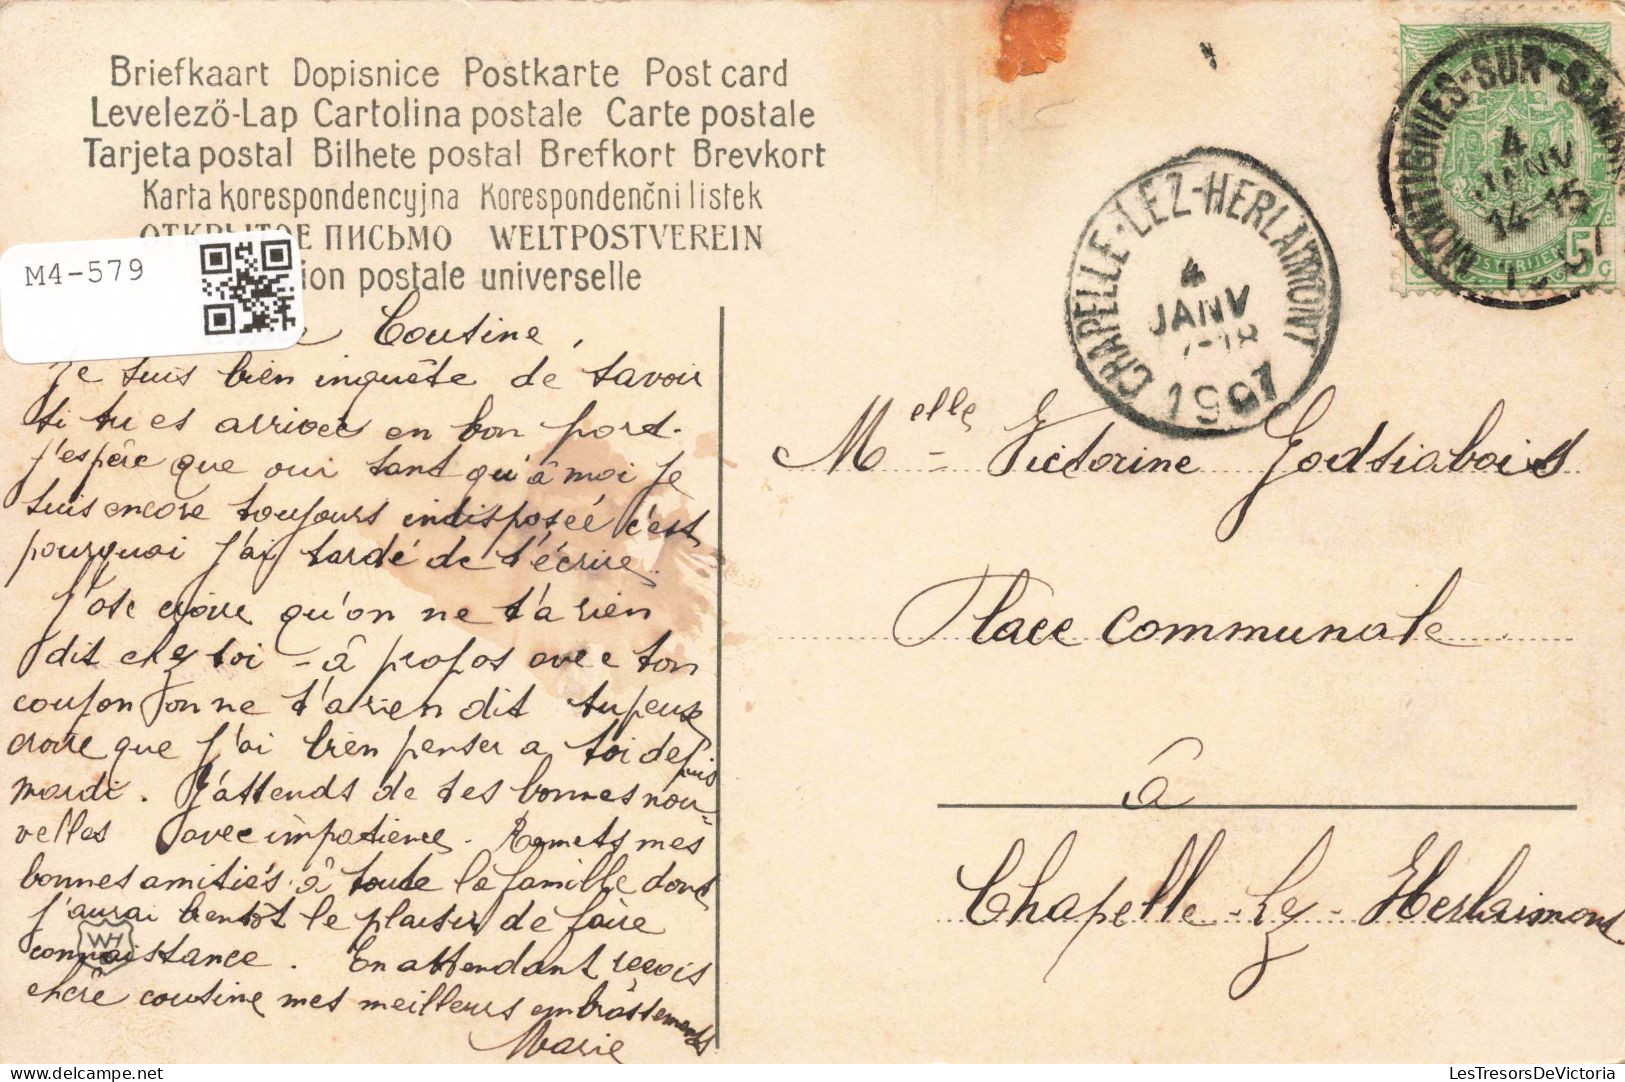 Briefkaart Dopisnice Postkarte Post card
Levelező-Lap Cartolina postale Carte postale
Tarjeta postal Bilhete postal Brefkort Brevkort
Karta korespondencyjna Korespondenční listek
ОТКРЫТОЕ ПИСЬМО WELTPOSTVEREIN
ion postale universelle
M4-579
Cousine,
Je suis bien inquête de savoir
si tu es arrivée en bon port.
j'espére que oui tant qu'à moi je
suis encore toujours indisposée c'est
pourquoi j'ai tardé de t'écrire.
J'ose croire qu'on ne t'a rien
dit chez toi - à propos avec ton
coupon on ne t'a rien dit tu peux
croire que j'ai bien penser a toi depuis
mardi. J'attends de tes bonnes nou-
velles avec impatience. Remets mes
bonnes amitiés à toute la famille dont
j'aurai bientôt le plaisir de faire
connaissance. En attendant reçois
chère cousine mes meilleurs embrassements
Marie
WH
MONTIGNIES-SUR-SAMBRE
4
JANV
14-15
5 C
CHAPELLE-LEZ-HERLAIMONT
4
JANV
1907
Melle Victorine Godtsiabois
Place communale
à
Chapelle-Lez-Herlaimont
LesTresorsDeVictoria